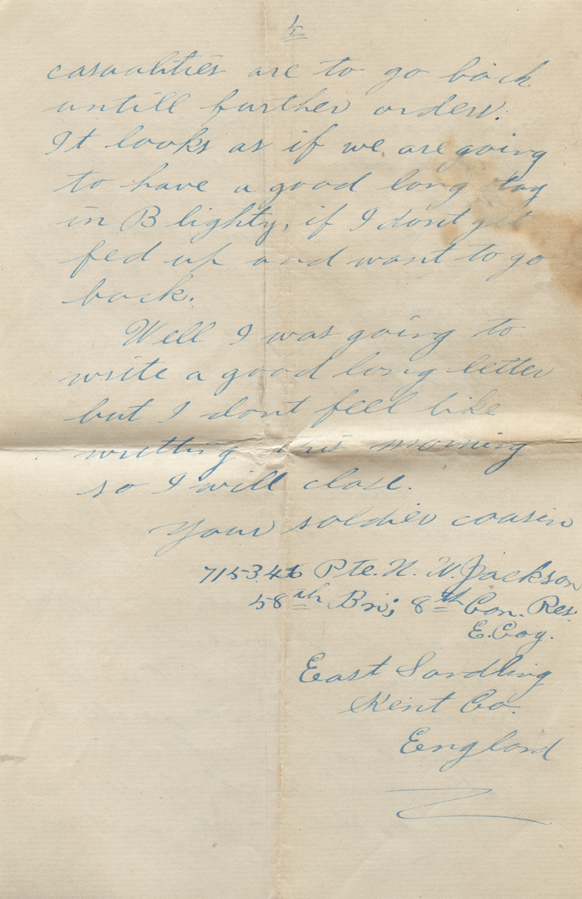 4
casualities are to go back
untill further orders.
It looks as if we are going
to have a good long stay
in Blighty, if I don't get
fed up and want to go
back.
Well I was going to
write a good long letter
but I dont feel like
writting this morning
so I will close.
Your soldier cousin
Pte. N. W. Jackson
58th Bn; 8th Can. Res.
E. Coy.
East Sandling
Kent Co.
England